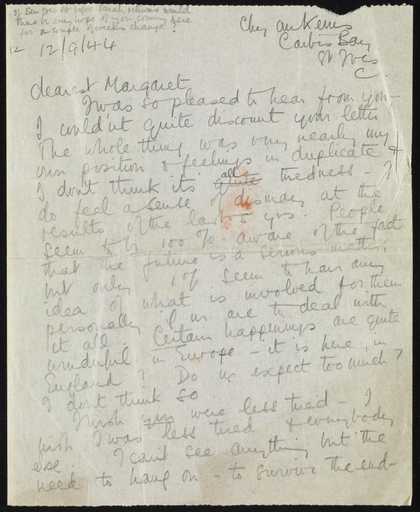 If Ben goes to before Sarah returns would
there be any hope of you coming here
for a couple of weeks change?
12
12/9/44
Chy an Kerris
Carbis Bay
St Ives
C
dearest Margaret
I was so pleased to hear from you -
I could'nt quite discount your letter
The whole thing was very nearly my
own position & feelings in duplicate &
I dont think its all quite tiredness - I
do feel a sense of dismay at the
results of the last 5 yrs. People
seem to be 100% aware of the fact
that the future is a serious matter;
but only 1% seem to have any
idea of what is involved for them
personally if we are to deal with
it all. Certain happenings are quite
wonderful in Europe - it is here, in
England? Do we expect too much?
I dont think so
I wish you were less tired - I
wish I was less tired & everybody
else. I cant see anything but the
need to hang on - to survive the end -